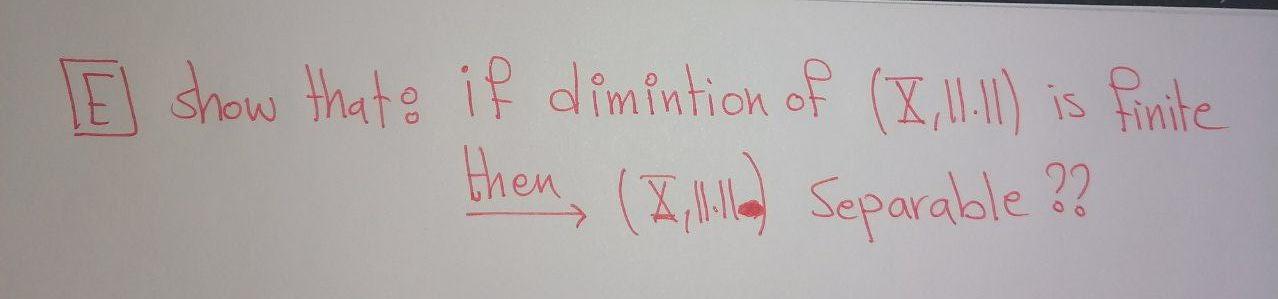 E show that: if dimintion of (X, ||.||) is finite
then → (X, ||.||) Separable ??